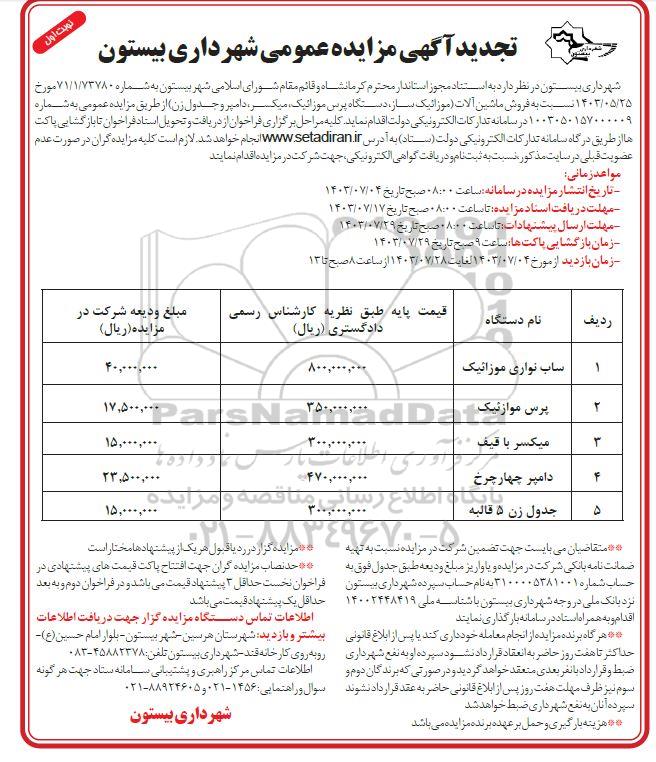 نوبت اول
شهرداری بیستون
تجدید آگهی مزایده عمومی شهرداری بیستون
شهرداری بیستون در نظر دارد به استناد مجوز استاندار محترم کرمانشاه و قائم مقام شورای اسلامی شهر بیستون به شماره ۷۱/۱/۷۳۷۸۰ مورخ
۱۴۰۳/۰۵/۲۵ نسبت به فروش ماشین آلات (موزائیک ساز، دستگاه پرس موزائیک، میکسر، دامپر و جدول زن) از طریق مزایده عمومی به شماره
۱۰۰۳۰۵۰۱۵۷۰۰۰۰۰۹ در سامانه تدارکات الکترونیکی دولت اقدام نماید. کلیه مراحل برگزاری فراخوان از دریافت و تحویل اسناد فراخوان تا بازگشایی پاکت
ها از طریق درگاه سامانه تدارکات الکترونیکی دولت (ستاد) به آدرس www.setadiran.ir انجام خواهد شد. لازم است کلیه مزایده گران در صورت عدم
عضویت قبلی در سایت مذکور، نسبت به ثبت نام و دریافت گواهی الکترونیکی، جهت شرکت در مزایده اقدام نمایند
مواعد زمانی:
-تاریخ انتشار مزایده در سامانه: ساعت ۰۸:۰۰ صبح تاریخ ۱۴۰۳/۰۷/۰۴
-مهلت دریافت اسناد مزایده: تا ساعت ۰۸:۰۰ صبح تاریخ ۱۴۰۳/۰۷/۱۷
-مهلت ارسال پیشنهادات: تا ساعت ۰۸:۰۰ صبح تاریخ ۱۴۰۳/۰۷/۲۹
-زمان بازگشایی پاکت ها: ساعت ۹ صبح تاریخ ۱۴۰۳/۰۷/۲۹
-زمان بازدید از مورخ ۱۴۰۳/۰۷/۰۴ لغایت ۱۴۰۳/۰۷/۲۸ از ساعت ۸ صبح تا ۱۳
ردیف نام دستگاه قیمت پایه طبق نظریه کارشناس رسمی دادگستری (ریال) مبلغ ودیعه شرکت در مزایده(ریال)
۱ ساب نواری موزائیک ۸۰۰,۰۰۰,۰۰۰ ۴۰,۰۰۰,۰۰۰
۲ پرس موازئیک ۳۵۰,۰۰۰,۰۰۰ ۱۷,۵۰۰,۰۰۰
۳ میکسر با قیف ۳۰۰,۰۰۰,۰۰۰ ۱۵,۰۰۰,۰۰۰
۴ دامپر چهارچرخ ۴۷۰,۰۰۰,۰۰۰ ۲۳,۵۰۰,۰۰۰
۵ جدول زن ۵ قالبه ۳۰۰,۰۰۰,۰۰۰ ۱۵,۰۰۰,۰۰۰
ParsNamadData
مرکز فرآوری اطلاعات پارس نماد داده ها
پایگاه اطلاع رسانی مناقصه و مزایده
۰۲۱-۸۸۳۴۹۶۷۰-۵
**متقاضیان می بایست جهت تضمین شرکت در مزایده نسبت به تهیه
ضمانت نامه بانکی شرکت در مزایده و یا واریز مبلغ ودیعه طبق جدول فوق به
حساب شماره ۳۱۰۰۰۰۵۳۸۱۰۰۱ به نام حساب سپرده شهرداری بیستون
نزد بانک ملی در وجه شهرداری بیستون با شناسه ملی ۱۴۰۰۲۴۴۸۴۱۹
اقدام و به همراه اسناد در سامانه بارگذاری نمایند
**هر گاه برنده مزایده از انجام معامله خودداری کند یا پس از ابلاغ قانونی
حداکثر تا هفت روز حاضر به انعقاد قرارداد نشود سپرده او به نفع شهرداری
ضبط و قرارداد با نفر بعدی منعقد خواهد گردید و در صورتی که برندگان دوم و
سوم نیز ظرف مهلت هفت روز پس از ابلاغ قانونی حاضر به عقد قرارداد نشوند
سپرده آنان به نفع شهرداری ضبط خواهد شد
**هزینه بارگیری و حمل بر عهده برنده مزایده می باشد
**مزایده گزار در رد یا قبول هر یک از پیشنهادها مختار است
**حد نصاب مزایده گران جهت افتتاح پاکت قیمت های پیشنهادی در
فراخوان نخست حداقل ۳ پیشنهاد قیمت می باشد و در فراخوان دوم و به بعد
حداقل یک پیشنهاد قیمت می باشد
اطلاعات تماس دستگاه مزایده گزار جهت دریافت اطلاعات
بیشتر و بازدید: شهرستان هرسین-شهر بیستون-بلوار امام حسین (ع)-
روبه روی کارخانه قند-شهرداری بیستون تلفن: ۴۵۸۸۲۳۷۸-۰۸۳
اطلاعات تماس مرکز راهبری و پشتیبانی سامانه ستاد جهت هر گونه
سوال و راهنمایی: ۱۴۵۶-۰۲۱ و ۸۸۹۲۴۶۰۵-۰۲۱
شهرداری بیستون